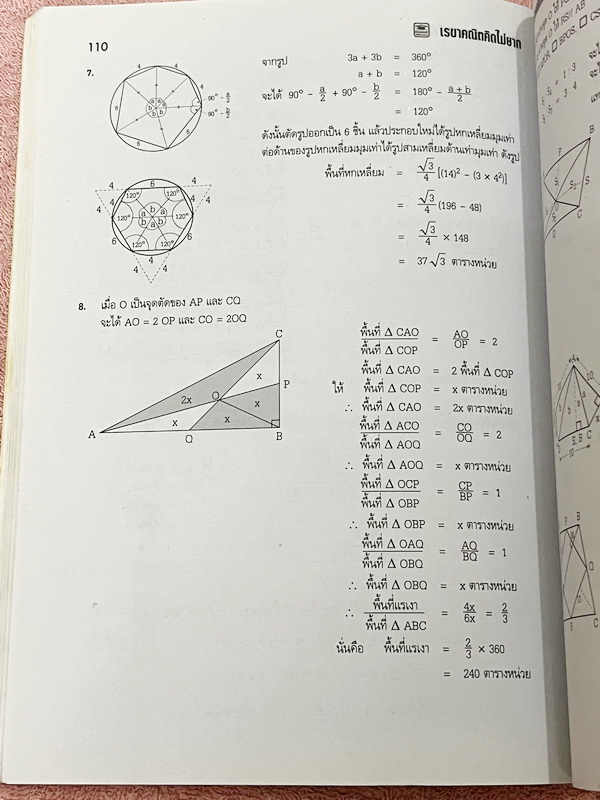 110
เรขาคณิตคิดไม่ยาก
7.
4 4
4 4
6 6
6
a a
b b
a b
90° - a/2
90° - b/2
จากรูป 3a + 3b = 360°
a + b = 120°
จะได้ 90° - a/2 + 90° - b/2 = 180° - (a + b)/2
= 120°
ดังนั้นตัดรูปออกเป็น 6 ชิ้น แล้วประกอบใหม่ได้รูปหกเหลี่ยมมุมเท่า
ต่อด้านของรูปหกเหลี่ยมมุมเท่าได้รูปสามเหลี่ยมด้านเท่ามุมเท่า ดังรูป
พื้นที่หกเหลี่ยม = √3/4 [(14)² - (3 × 4²)]
= √3/4 (196 - 48)
= √3/4 × 148
= 37√3 ตารางหน่วย
4 6 4
4 120° 120° 4
a b a
120° 120°
b a b
6 120° 120° 6
4 4
4 4
8. เมื่อ O เป็นจุดตัดของ AP และ CQ
จะได้ AO = 2 OP และ CO = 2OQ
C
x
P
2x O x
x x
A Q B
พื้นที่ Δ CAO / พื้นที่ Δ COP = AO/OP = 2
พื้นที่ Δ CAO = 2 พื้นที่ Δ COP
ให้ พื้นที่ Δ COP = x ตารางหน่วย
∴ พื้นที่ Δ CAO = 2x ตารางหน่วย
พื้นที่ Δ ACO / พื้นที่ Δ AOQ = CO/OQ = 2
∴ พื้นที่ Δ AOQ = x ตารางหน่วย
พื้นที่ Δ OCP / พื้นที่ Δ OBP = CP/BP = 1
∴ พื้นที่ Δ OBP = x ตารางหน่วย
พื้นที่ Δ OAQ / พื้นที่ Δ OBQ = AQ/BQ = 1
∴ พื้นที่ Δ OBQ = x ตารางหน่วย
∴ พื้นที่แรเงา / พื้นที่ Δ ABC = 4x/6x = 2/3
นั่นคือ พื้นที่แรเงา = 2/3 × 360
= 240 ตารางหน่วย